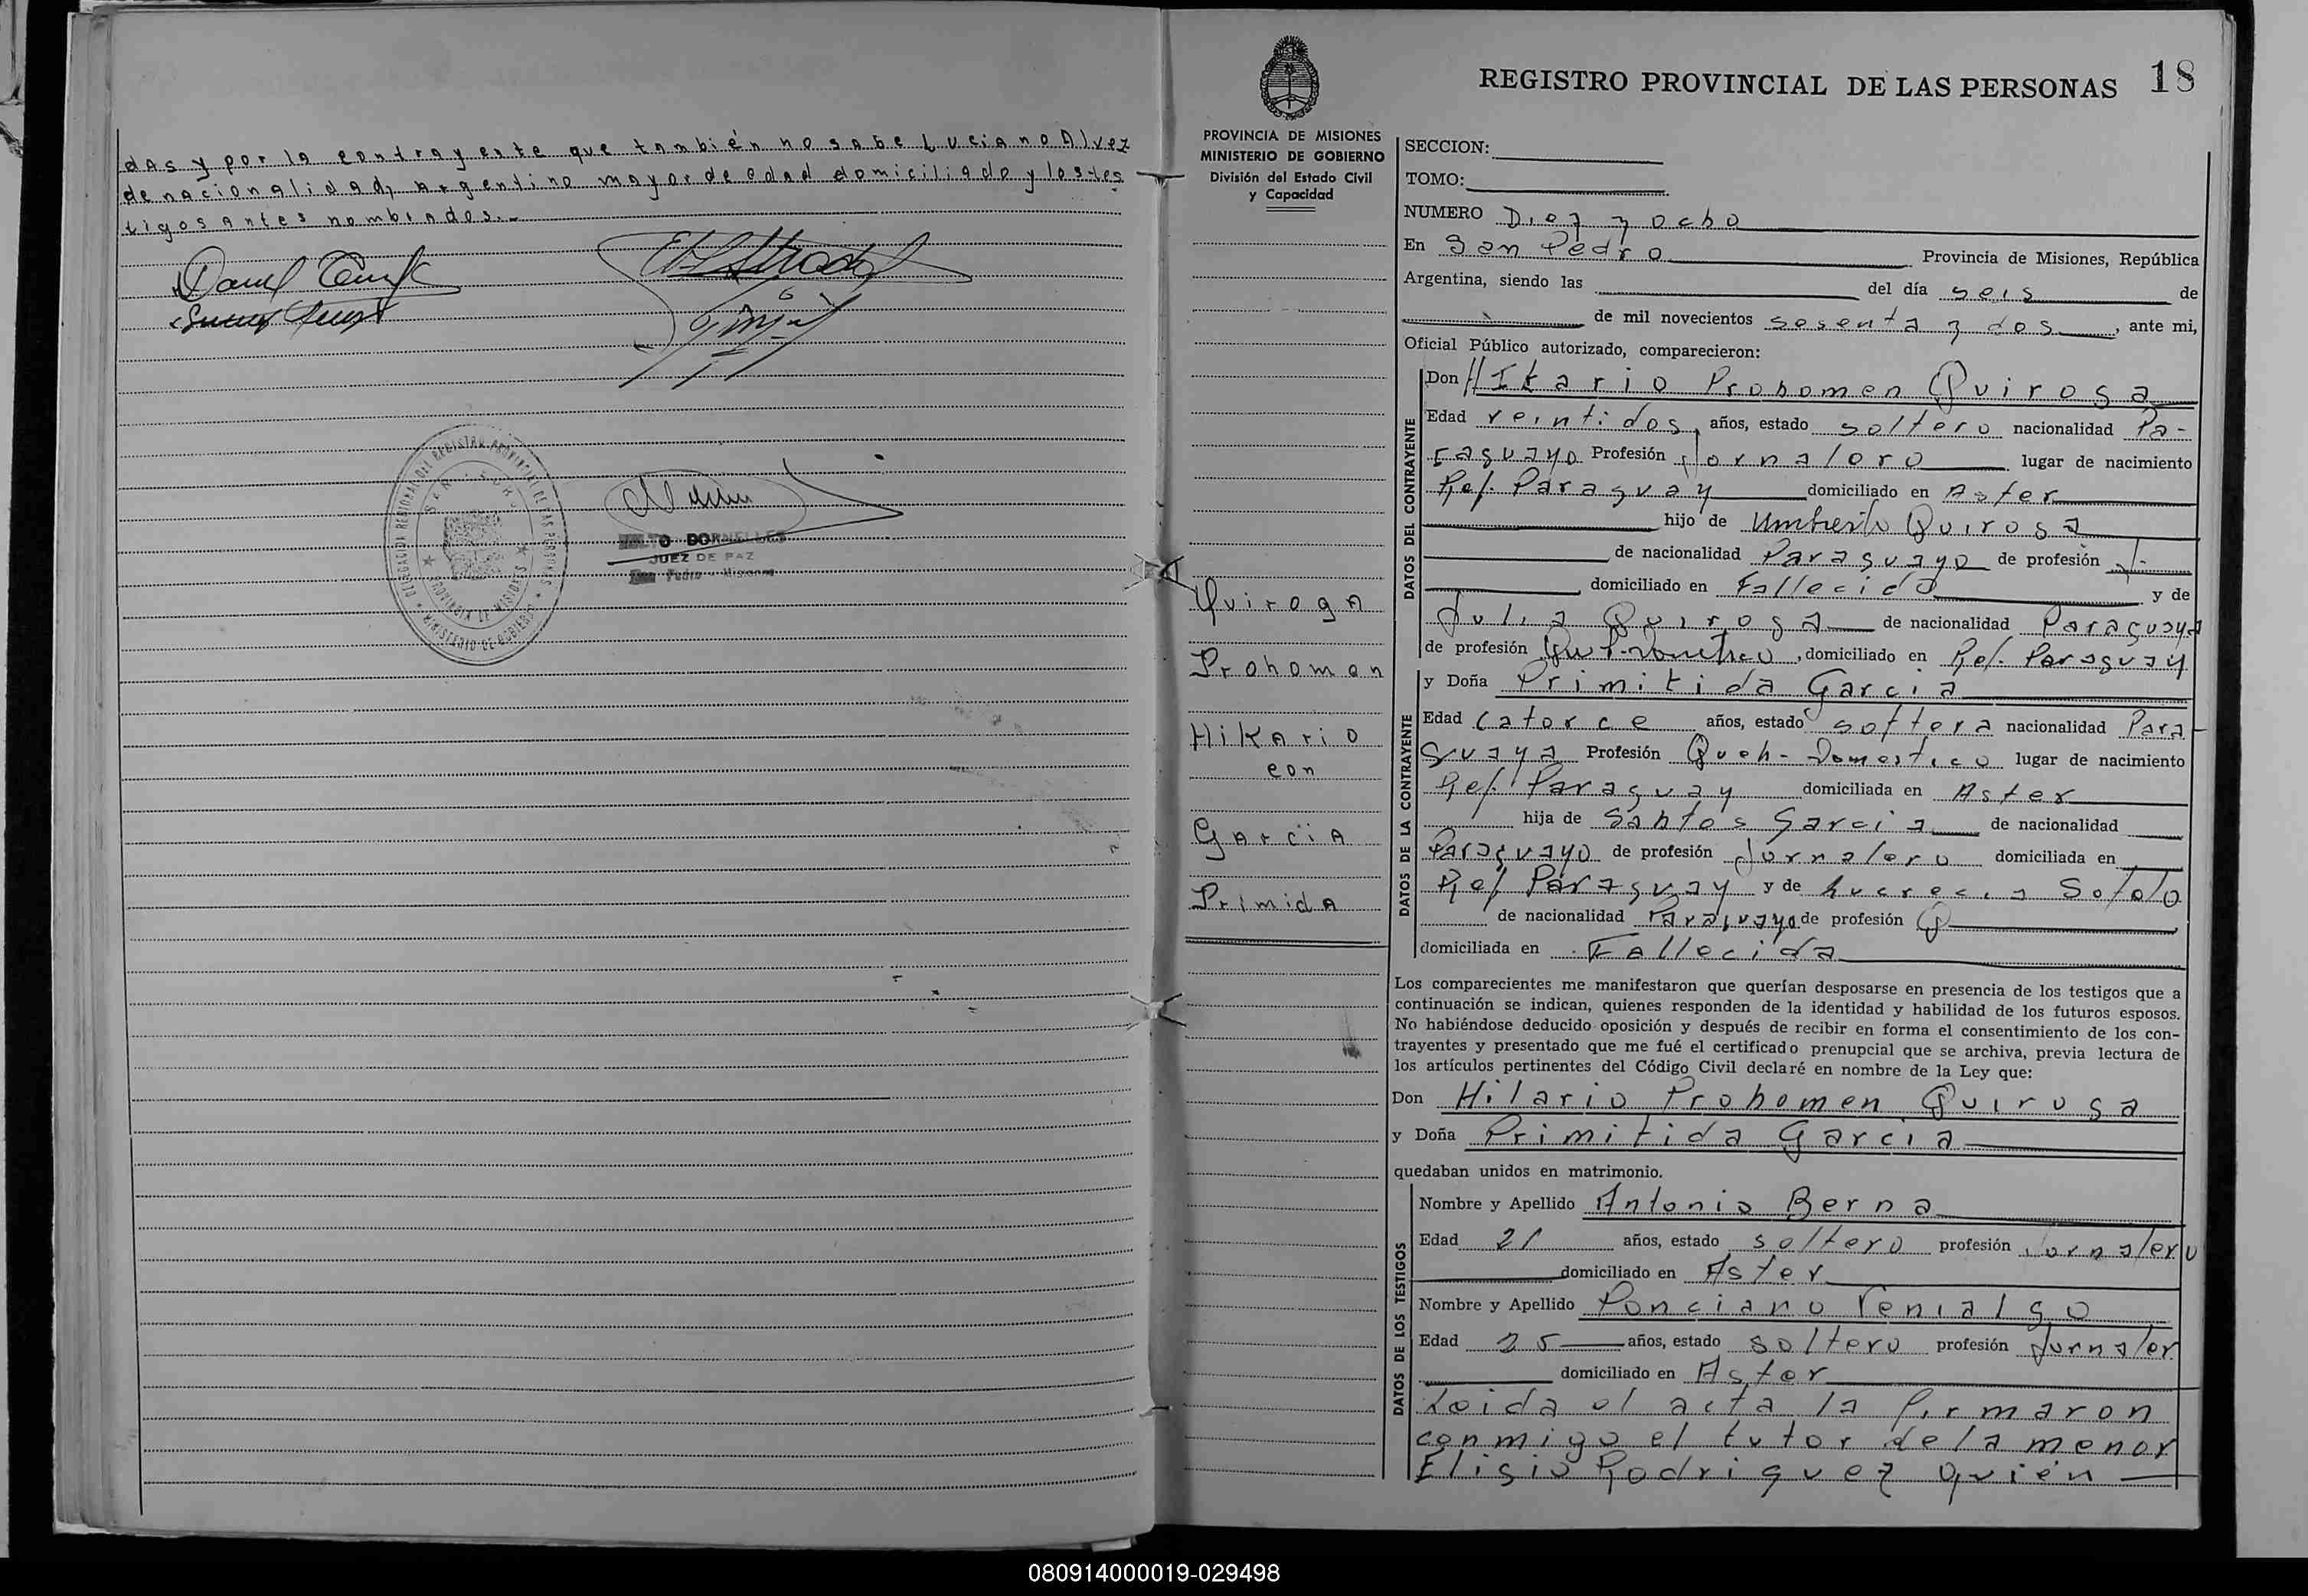 das y por la contrayente que también no sabe Luciano Alvez
de nacionalidad, Argentino mayor de edad domiciliado y los tes
tigos antes nombrados.-
DELEGACION REGIONAL DEL REGISTRO PROVINCIAL DE LAS PERSONAS
PROVINCIA DE MISIONES
MINISTERIO DE GOBIERNO
DORNELLES
JUEZ DE PAZ
San Pedro - Misiones
REGISTRO PROVINCIAL DE LAS PERSONAS 18
PROVINCIA DE MISIONES
MINISTERIO DE GOBIERNO
División del Estado Civil
y Capacidad
Quiroga
Prohomen
Hikario
con
Garcia
Primida
SECCION:
TOMO:
NUMERO Diez y ocho
En San Pedro Provincia de Misiones, República
Argentina, siendo las del día seis de
de mil novecientos sesenta y dos, ante mi,
Oficial Público autorizado, comparecieron:
DATOS DEL CONTRAYENTE
Don Hikario Prohomen Quiroga
Edad veintidos, años, estado soltero nacionalidad Pa-
raguayo Profesión Jornalero lugar de nacimiento
Rep. Paraguay domiciliado en Aster
hijo de Umberto Quiroga
de nacionalidad Paraguayo de profesión J-
domiciliado en Fallecido y de
Julia Quiroga de nacionalidad Paraguaya
de profesión Queh-Domestico, domiciliado en Rep. Paraguay
DATOS DE LA CONTRAYENTE
y Doña Primitida Garcia
Edad Catorce años, estado soltera nacionalidad Para-
guaya Profesión Queh-Domestico lugar de nacimiento
Rep. Paraguay domiciliada en Aster
hija de Santos Garcia de nacionalidad
Paraguayo de profesión Jornalero domiciliada en
Rep Paraguay y de Lucrecia Sotelo
de nacionalidad Paraguayo de profesión Q
domiciliada en Fallecida
Los comparecientes me manifestaron que querían desposarse en presencia de los testigos que a
continuación se indican, quienes responden de la identidad y habilidad de los futuros esposos.
No habiéndose deducido oposición y después de recibir en forma el consentimiento de los con-
trayentes y presentado que me fué el certificado prenupcial que se archiva, previa lectura de
los artículos pertinentes del Código Civil declaré en nombre de la Ley que:
Don Hilario Prohomen Quiroga
y Doña Primitida Garcia
quedaban unidos en matrimonio.
DATOS DE LOS TESTIGOS
Nombre y Apellido Antonio Berna
Edad 21 años, estado soltero profesión Jornalero
domiciliado en Aster
Nombre y Apellido Ponciano Venialgo
Edad 25 años, estado soltero profesión Jornaler
domiciliado en Aster
Leida el acta la firmaron
conmigo el tutor de la menor
Eligio Rodriguez quién
080914000019-029498